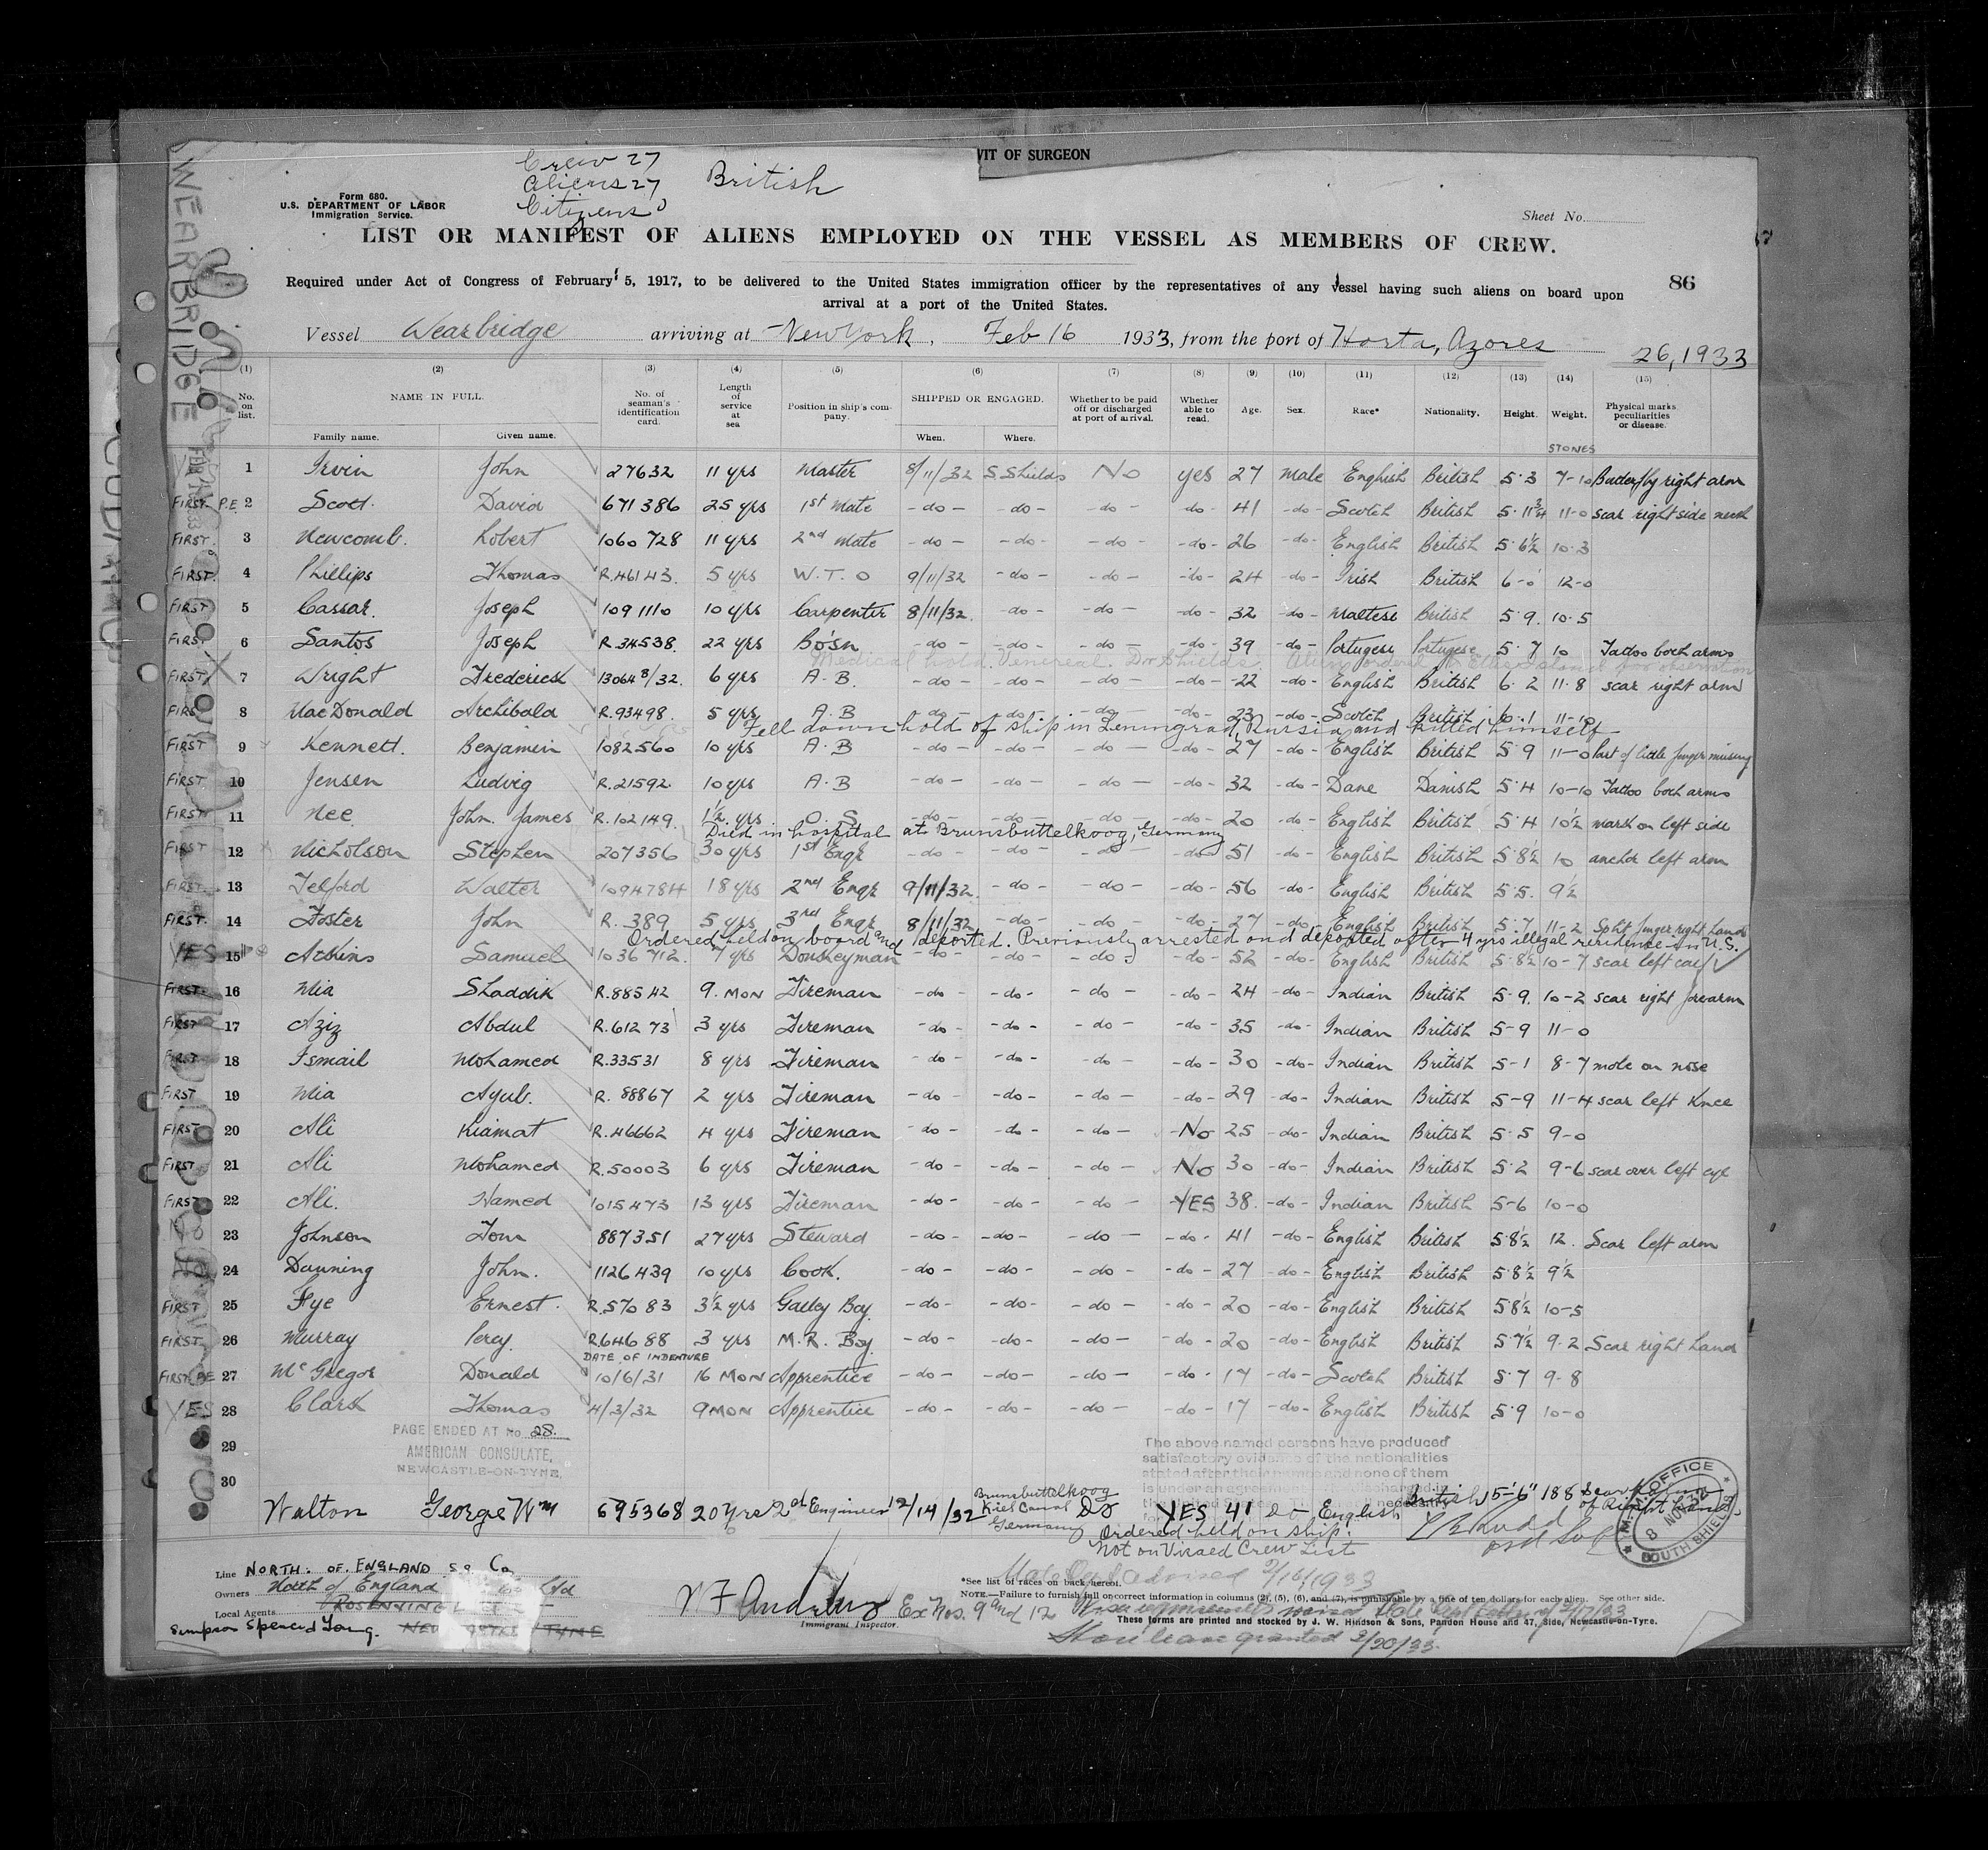 VIT OF SURGEON
Crew 27
Aliens 27 British
Citizens 0
WEARBRIDGE
Form 680.
U.S. DEPARTMENT OF LABOR
Immigration Service.
Sheet No.
LIST OR MANIFEST OF ALIENS EMPLOYED ON THE VESSEL AS MEMBERS OF CREW.
Required under Act of Congress of February 5, 1917, to be delivered to the United States immigration officer by the representatives of any vessel having such aliens on board upon
arrival at a port of the United States.
86
Vessel Wearbridge arriving at New York, Feb 16 1933, from the port of Horta, Azores
26, 1933
(1) (2) (3) (4) (5) (6) (7) (8) (9) (10) (11) (12) (13) (14) (15)
No. on list. NAME IN FULL. No. of seaman's identification card. Length of service at sea Position in ship's company. SHIPPED OR ENGAGED. Whether to be paid off or discharged at port of arrival. Whether able to read. Age. Sex. Race* Nationality. Height. Weight. Physical marks, peculiarities or disease.
Family name. Given name. When. Where.
STONES
1 Irvin John 27632 11 yrs Master 8/11/32 S. Shields No yes 27 Male English British 5·3 7-10 Butterfly right arm
FIRST P.E. 2 Scott. David 671386 25 yrs 1st Mate -do- -do- -do- -do- 41 -do- Scotch British 5·11¾ 11-0 scar right side neck
FIRST. 3 Newcomb. Robert 1060728 11 yrs 2nd Mate -do- -do- -do- -do- 26 -do- English British 5·6½ 10·3
FIRST. 4 Phillips Thomas R.46143. 5 yrs W.T.O 9/11/32 -do- -do- -do- 24 -do- Irish British 6-0 12-0
FIRST 5 Cassar. Joseph 1091110 10 yrs Carpenter 8/11/32. -do- -do- -do- 32 -do- Maltese British 5 9. 10·5
FIRST 6 Santos Joseph R.34538. 22 yrs Bo'sn -do- -do- -do- -do- 39 -do- Portugese Portugese 5·7 10 Tattoo both arms
Medical hold. Venereal. Dr Shields.
FIRST X 7 Wright Frederick 130648/32. 6 yrs A.B. -do- -do- -do- -do- 22 -do- English British 6·2 11·8 scar right arm
FIRST 8 MacDonald Archibald R.93498. 5 yrs A.B -do- -do- -do- -do- 23 -do- Scotch British 6·1 11-10
Fell down hold of ship in Leningrad, Russia and killed himself
FIRST 9 Kennett. Benjamin 1082560 10 yrs A.B -do- -do- -do- -do- 27 -do- English British 5 9 11-0 Part of little finger missing
FIRST 10 Jensen Ludvig R.21592. 10 yrs A.B -do- -do- -do- 32 -do- Dane Danish 5·4 10-10 Tattoo both arms
FIRST 11 Nee John James R.102149. 1½ yrs O.S. -do- -do- -do- -do- 20 -do- English British 5·4 10½ mark on left side
Died in hospital at Brunsbuttelkoog, Germany
FIRST 12 Nicholson Stephen 207356 30 yrs 1st Engr -do- -do- -do- -do- 51 -do- English British 5 8½ 10 anchor left arm
FIRST. 13 Telford Walter 1094784 18 yrs 2nd Engr 9/11/32. -do- -do- -do- 56 -do- English British 5·5. 9½
FIRST. 14 Foster John R. 389 5 yrs 3rd Engr 8/11/32 -do- -do- -do- 27 -do- English British 5·7 11-2 Split finger right hand
Ordered held on board and deported. Previously arrested and deported after 4 yrs illegal residence in U.S.
YES 15 Atkins Samuel 1036712. 7 yrs Donkeyman -do- -do- -do- -do- 52 -do- English British 5·8½ 10-7 scar left ear
FIRST 16 Mia Shaddik R.88542 9. MON Fireman -do- -do- -do- -do- 24 -do- Indian British 5·9. 10-2 scar right forearm
FIRST 17 Aziz Abdul R.61273 3 yrs Fireman -do- -do- -do- -do- 35 -do- Indian British 5-9 11-0
FIRST 18 Ismail Mohamed R.33531 8 yrs Fireman -do- -do- -do- -do- 30 -do- Indian British 5-1 8-7 mole on nose
FIRST 19 Mia Ayub. R. 88867 2 yrs Fireman -do- -do- -do- -do- 29 -do- Indian British 5-9 11-4 scar left knee
FIRST 20 Ali Kiamat R.46662 4 yrs Fireman -do- -do- -do- No 25 -do- Indian British 5·5 9-0
FIRST 21 Ali Mohamed R.50003 6 yrs Fireman -do- -do- -do- No 30 -do- Indian British 5·2 9-6 scar over left eye
FIRST 22 Ali. Hamed 1015473 13 yrs Fireman -do- -do- -do- YES 38. -do- Indian British 5-6 10-0
No 23 Johnson Tom 887351 27 yrs Steward -do- -do- -do- -do- 41 -do- English British 5·8½ 12. Scar left arm
No 24 Dunning John. 1126439 10 yrs Cook. -do- -do- -do- -do- 27 -do- English British 5·8½ 9½
FIRST 25 Frye Ernest. R.57083 3½ yrs Galley Boy. -do- -do- -do- -do- 20 -do- English British 5 8½ 10-5
FIRST. 26 Murray Percy R.64688 3 yrs M.R. Boy. -do- -do- -do- -do- 20 -do- English British 5·7½ 9·2 Scar right hand
DATE OF INDENTURE
FIRST P.E 27 McGregor Donald 10/6/31 16 MON Apprentice -do- -do- -do- -do- 17 -do- Scotch British 5·7 9-8
YES 28 Clark Thomas 4/3/32 9 MON Apprentice -do- -do- -do- -do- 17 -do- English British 5·9 10-0
PAGE ENDED AT No. 28.
29
AMERICAN CONSULATE,
NEWCASTLE-ON-TYNE.
30
The above named persons have produced
satisfactory evidence of the nationalities
stated after their names and none of them
is under an agreement
necessity
Walton George Wm 695368 20 yrs 2nd Engineer 12/14/32 Brunsbuttelkoog Kiel Canal Germany Do YES 41 do English British 5'-6" 188 Scar
of Right hand
Ordered held on ship.
Not on Visaed Crew List
M.M. OFFICE
8 NOV 32
SOUTH SHIELDS
Line NORTH. OF. ENGLAND S.S. Co
Owners North of England Ltd
Local Agents
Simpson Spence & Young.
W F Andrews
Immigrant Inspector.
Ex Nos. 9 and 12
*See list of races on back hereof.
NOTE.—Failure to furnish full or correct information in columns (2), (5), (6), and (7), is punishable by a fine of ten dollars for each alien. See other side.
These forms are printed and stocked by J. W. Hindson & Sons, Pandon House and 47, Side, Newcastle-on-Tyne.
Shore leave granted 2/20/33.